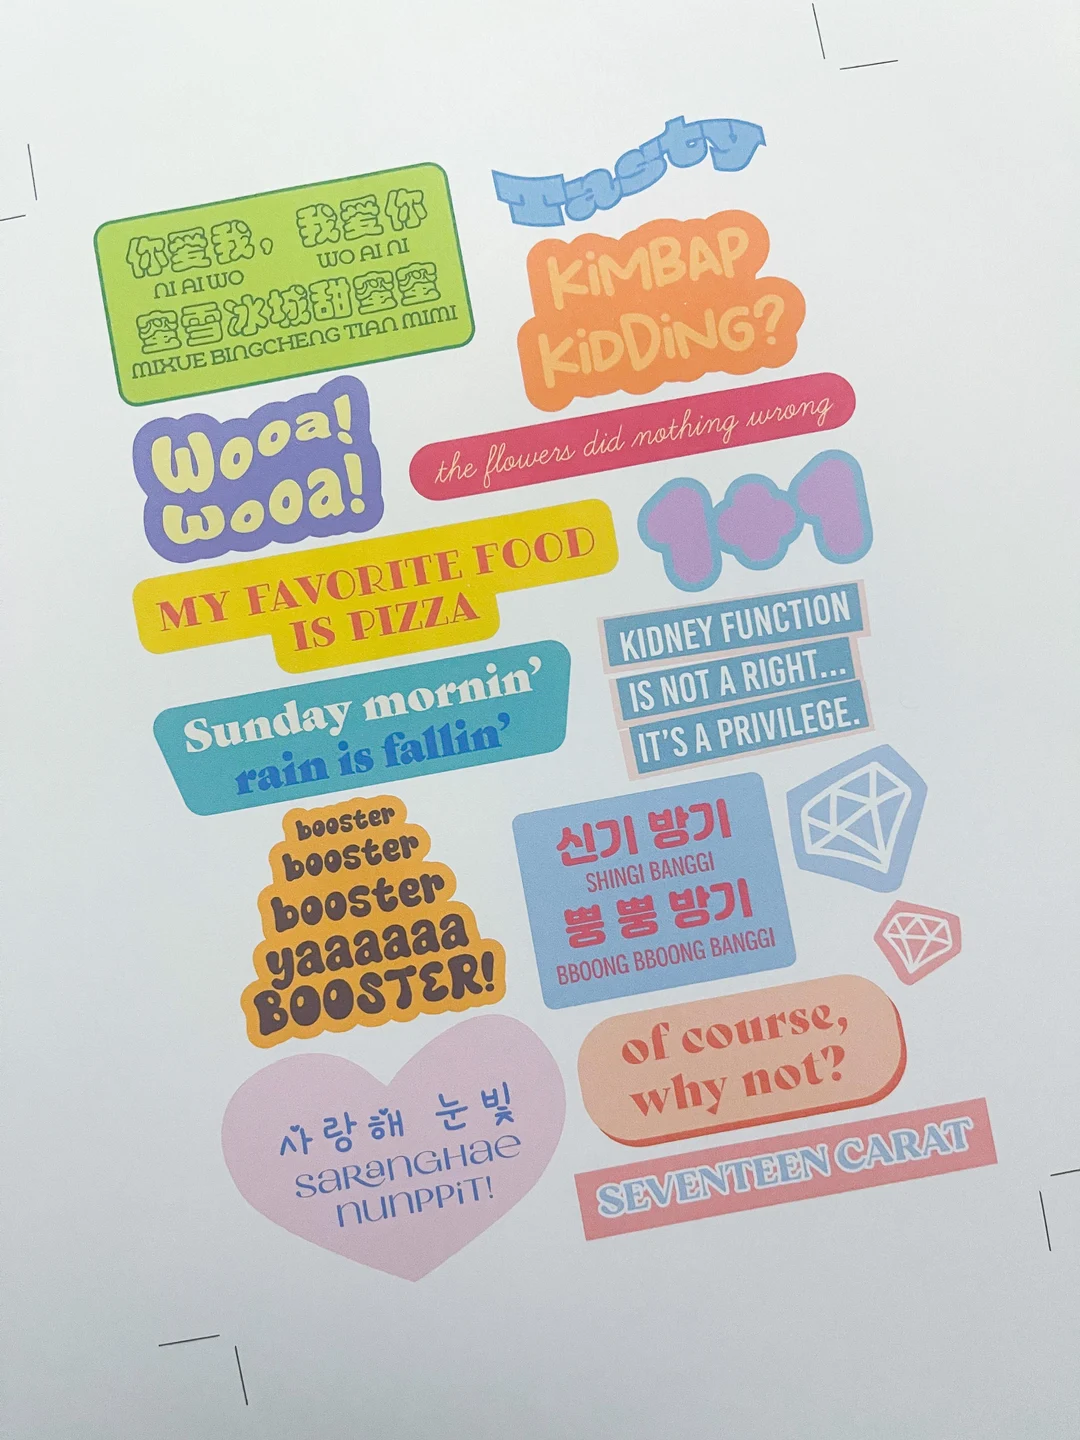 Tasty
你爱我，我爱你
NI AI WO WO AI NI
蜜雪冰城甜蜜蜜
MIXUE BINGCHENG TIAN MIMI
KiMBAP
KiDDiNG?
Wooa!
wooa!
the flowers did nothing wrong
1+1
MY FAVORITE FOOD
IS PIZZA
KIDNEY FUNCTION
IS NOT A RIGHT...
IT'S A PRIVILEGE.
Sunday mornin'
rain is fallin'
booster
booster
booster
yaaaaaaa
BOOSTER!
신기 방기
SHINGI BANGGI
뿡 뿡 방기
BBOONG BBOONG BANGGI
of course,
why not?
사랑해 눈빛
SARANGHAE
NUNPPiT!
SEVENTEEN CARAT